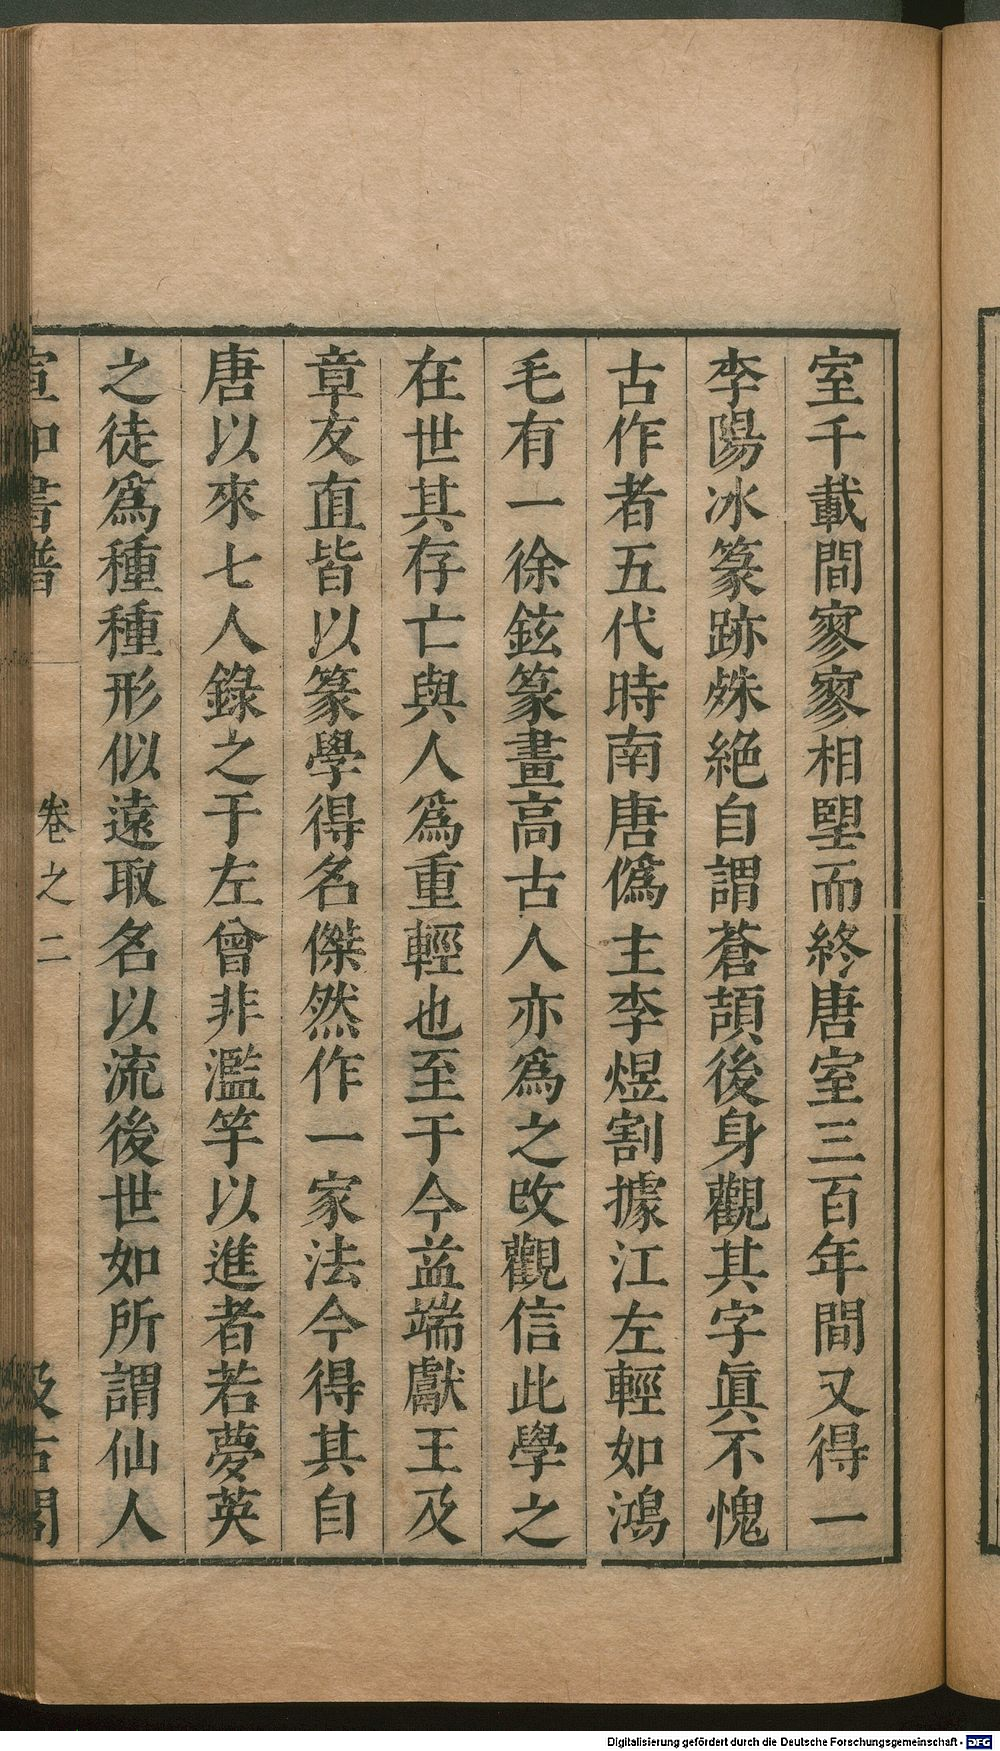 室千載間寥寥相朢而終唐室三百年間又得一
李陽冰篆跡殊絶自謂蒼頡後身觀其字眞不愧
古作者五代時南唐僞主李煜割據江左輕如鴻
毛有一徐鉉篆畫高古人亦爲之改觀信此學之
在世其存亡與人爲重輕也至于今益端獻王及
章友直皆以篆學得名傑然作一家法今得其自
唐以來七人錄之于左曾非濫竽以進者若夢英
之徒爲種種形似遠取名以流後世如所謂仙人
宣和書譜 卷之二 汲古閣
Digitalisierung gefördert durch die Deutsche Forschungsgemeinschaft - DFG